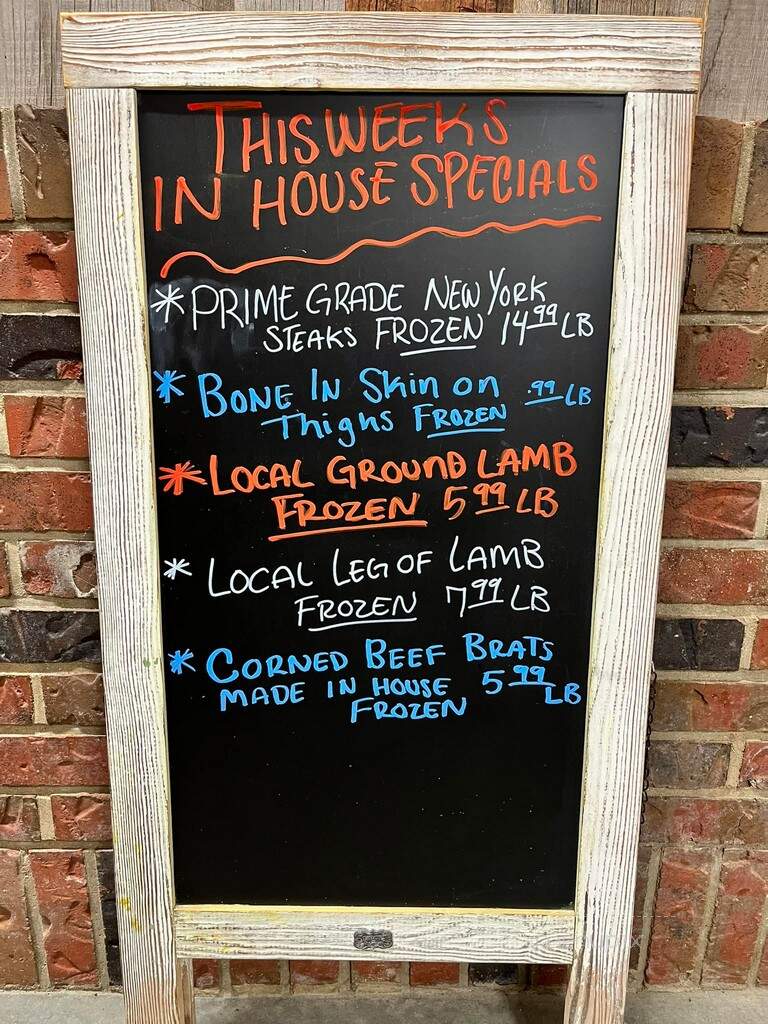 THIS WEEKS
IN HOUSE SPECIALS
* PRIME GRADE NEW YORK
STEAKS FROZEN 14.99 LB
* BONE IN Skin on
Thighs FROZEN .99 LB
* LOCAL GROUND LAMB
FROZEN 5.99 LB
* LOCAL LEG OF LAMB
FROZEN 7.99 LB
* CORNED BEEF BRATS
MADE IN HOUSE 5.99 LB
FROZEN